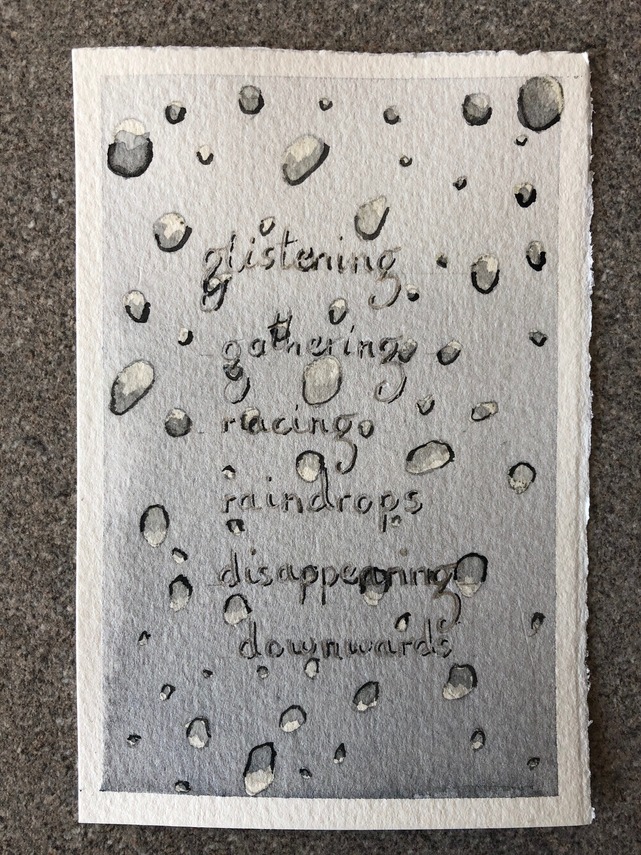 glistening
gathering
racing
raindrops
disappearing
downwards